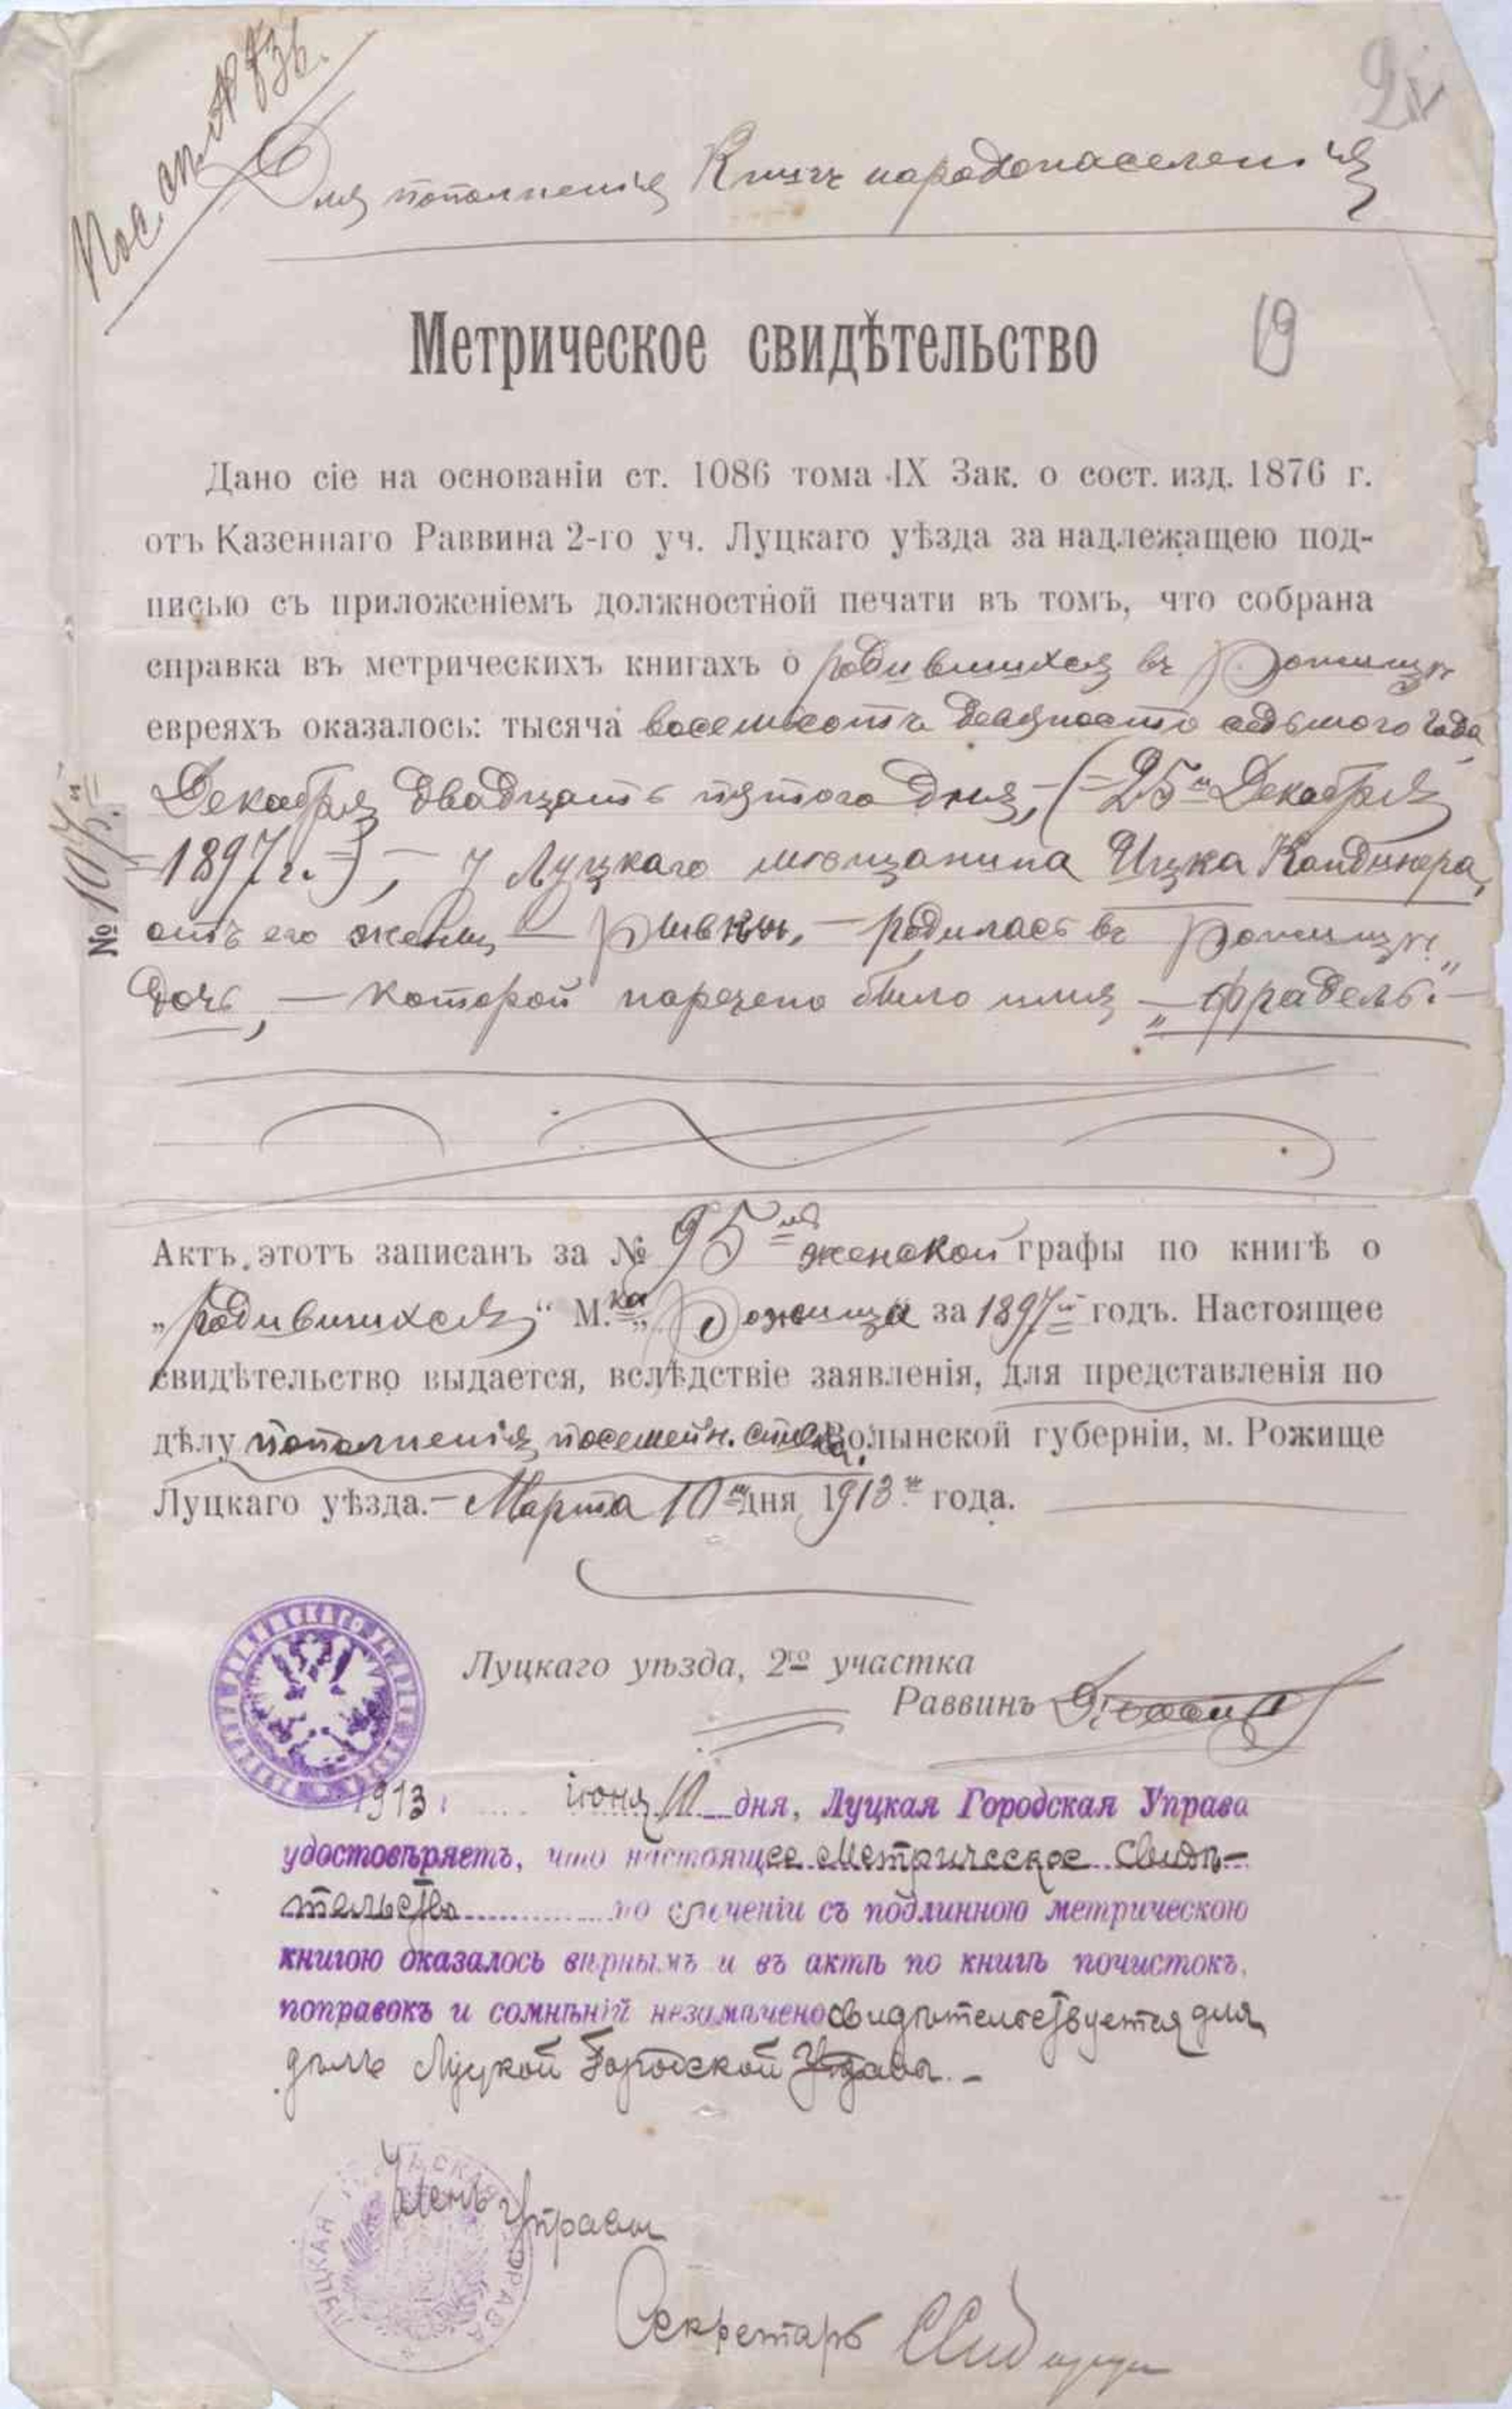 Пос. сп. № 836.
21
Для пополненія Книгъ народонаселенія
Метрическое свидѣтельство
19
Дано сіе на основаніи ст. 1086 тома IX Зак. о сост. изд. 1876 г.
отъ Казеннаго Раввина 2-го уч. Луцкаго уѣзда за надлежащею под-
писью съ приложеніемъ должностной печати въ томъ, что собрана
справка въ метрическихъ книгахъ о родившихся въ Рожищѣ
евреяхъ оказалось: тысяча восемьсотъ девяносто седьмого года
Декабря двадцать пятого дня, – (–25го Декабря
–1897 г.–), – у Луцкаго мѣщанина Ицка Кандинера,
№ 107.
отъ его жены – Ривки, – родилась въ Рожищѣ
дочь, – которой наречено было имя – „Фрадель“. –
Актъ этотъ записанъ за № 95мъ женской графы по книгѣ о
„родившихся“ М.ка „Рожища за 1897й годъ. Настоящее
свидѣтельство выдается, вслѣдствіе заявленія, для представленія по
дѣлу пополненія посемейн. списка. Волынской губерніи, м. Рожище
Луцкаго уѣзда. – Марта 10го дня 1913го года.
Луцкаго уѣзда, 2го участка
Раввинъ
1913 г. іюня 10 дня, Луцкая Городская Управа
удостовѣряетъ, что настоящее Метрическое свидѣ-
тельство по сличеніи съ подлинною метрическою
книгою оказалось вѣрнымъ и въ актѣ по книгѣ почистокъ,
поправокъ и сомнѣній незамѣчено свидѣтельствуется для
дѣлъ Луцкой Городской Управы. –
Членъ Управы
Секретарь